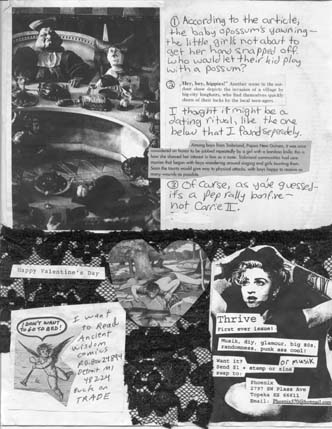 ① According to the article,
the baby opossum's yawning—
the little girl's not about to
get her hand snapped off.
Who would let their kid play
with a possum?
②
Hey, hey, hippies!" Another scene in the
door show depicts the invasion of a village by
big-city longhairs, who find themselves quickly
shorn of their locks by the local teen-agers.
I thought it might be a
dating ritual, like the one
below that I found separately.
Among boys from Trobriand, Papua New Guinea, it was once
considered an honor to be injured repeatedly by a girl with a bamboo knife; this is
how she showed her interest in him as a mate. Trobriand communities had
that began with boys wandering around singing and girls taunting them.
Soon the taunts would give way to physical attacks, with boys happy to receive as
many wounds as possible.
③ Of course, as you've guessed-
it's a pep rally bonfire—
not Carrie II.
Happy Valentine's Day
I DON'T WANT
TO GO TO BED!
I want
to Read
Ancient
Wisdom
comics
PO Box 24894
Detroit MI
48224
Buck or
TRADE
Thrive
First ever issue!
Musik, diy, glamour, big 80s,
randomness, punk ass cool!
Want it?
or musik
Send $1 + stamp or zine
swap to:
Phoenix
2737 SW Plass Ave
Topeka KS 66611
Email: